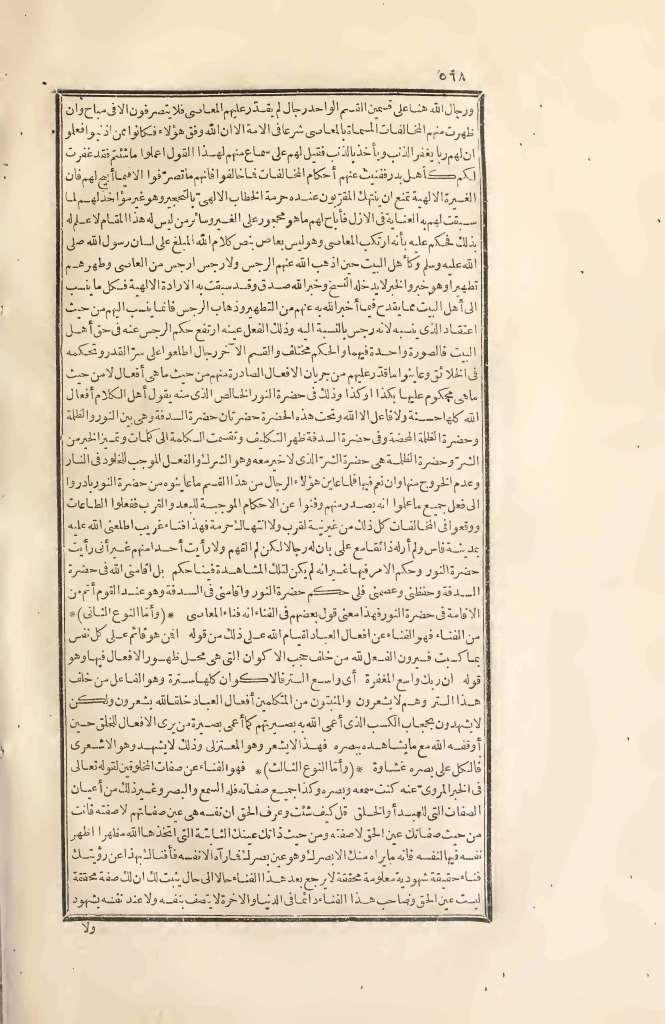 ٥٩٨
ورجال الله هنا على قسمين القسم الواحد رجال لم يقدر عليهم المعاصي فلا يتصرفون الا في مباح وان
ظهرت منهم المخالفات المسماة بالمعاصي شرعا في الامة الا ان الله وفق هؤلاء فكانوا ممن اذنبوا فعلموا
ان لهم ربا يغفر الذنب ويأخذ بالذنب فقيل لهم على سماع منهم لهذا القول اعملوا ما شئتم فقد غفرت
لكم كأهل بدر ففنيت عنهم أحكام المخالفات فما خالفوا فانهم ما تصرّفوا الا فيما أبيح لهم فان
الغيرة الالهية تمنع ان ينتهك المقرّبون عنده حرمة الخطاب الالهيّ بالتحجير وهو غير مؤاخذ لهم لما
سبقت لهم به العناية في الازل فأباح لهم ما هو محجور على الغير وسائر من ليس له هذا المقام لا علم له
بذلك فيحكم عليه بأنه ارتكب المعاصي وهو ليس بعاص بنص كلام الله المبلغ على لسان رسول الله صلى
الله عليه وسلم وكأهل البيت حين اذهب الله عنهم الرجس ولا رجس ارجس من المعاصي وطهرهم
تطهيرا وهو خبر والخبر لا يدخله النسخ وخبر الله صدق وقد سبقت به الارادة الالهية فكل ما ينسب
الى أهل البيت مما يقدح فيما أخبر الله به عنهم من التطهير وذهاب الرجس فانما ينسب اليهم من حيث
اعتقاد الذي ينسبه لانه رجس بالنسبة اليه وذلك الفعل عينه ارتفع حكم الرجس عنه في حق أهل
البيت فالصورة واحدة فيهما والحكم مختلف والقسم الآخر رجال اطلعوا على سرّ القدر وتحكمه
في الخلائق وعاينوا ما قدّر عليهم من جريان الافعال الصادرة منهم من حيث ما هي أفعال لا من حيث
ما هي محكوم عليها بكذا او كذا وذلك في حضرة النور الخالص الذي منه يقول أهل الكلام أفعال
الله كلها حسنة ولا فاعل الا الله وتحت هذه الحضرة حضرتان حضرة السدفة وهي بين النور والظلمة
وحضرة الظلمة المحضة وفي حضرة السدفة ظهر التكليف وتقسمت الكلمة الى كلمات وتميز الخير من
الشرّ وحضرة الظلمة هي حضرة الشرّ الذي لا خير معه وهو الشرك والفعل الموجب للخلود في النار
وعدم الخروج منها وان نعم فيها فلما عاين هؤلاء الرجال من هذا القسم ما عاينوه من حضرة النور بادروا
الى فعل جميع ما علموا انه يصدر منهم وفنوا عن الاحكام الموجبة للبعد والقرب ففعلوا الطاعات
ووقعوا في المخالفات كل ذلك من غير نية لقرب ولا انتهاك حرمة فهذا فناء غريب اطلعني الله عليه
بمدينة فاس ولم أر له ذائقا مع علمي بان له رجالا لكن لم القهم ولا رأيت أحدا منهم غير أني رأيت
حضرة النور وحكم الامر فيها غير انه لم يكن لتلك المشاهدة فينا حكم بل اقامني الله في حضرة
السدفة وحفظني وعصمني فلي حكم حضرة النور واقامتي في السدفة وهو عند القوم أتم من
الاقامة في حضرة النور فهذا معنى قول بعضهم في الفناء انه فناء المعاصي *(وأما النوع الثاني)*
من الفناء فهو الفناء عن افعال العباد لقيام الله على ذلك من قوله افمن هو قائم على كل نفس
بما كسبت فيرون الفعل لله من خلف حجب الاكوان التي هي محل ظهور الافعال فيها وهو
قوله ان ربك واسع المغفرة أي واسع الستر فالاكوان كلها ستره وهو الفاعل من خلف
هذا الستر وهم لا يشعرون والمثبتون من المتكلمين أفعال العباد خلقا لله يشعرون ولكن
لا يشهدون بحجاب الكسب الذي أعمى الله به بصيرتهم كما أعمى بصيرة من يرى الافعال للخلق حين
أوقفه الله مع ما يشاهده ببصره فهذا لا يشعر وهو المعتزلي وذلك لا يشهد وهو الاشعري
فالكل على بصره غشاوة *(وأما النوع الثالث)* فهو الفناء عن صفات المخلوقين لقوله تعالى
في الخبر المرويّ عنه كنت سمعه وبصره وكذا جميع صفاته فله السمع والبصر وغير ذلك من أعيان
الصفات التي للعبد أو الخلق قل كيف شئت وعرف الحق ان نفسه هي عين صفاتهم لا صفته فانت
من حيث صفاتك عين الحق لا صفته ومن حيث ذاتك عينك الثابتة التي اتخذها الله مظهرا اظهر
نفسه فيها لنفسه فانه ما يراه منك الا بصرك وهو عين بصرك فما رآه الا نفسه فأفناك بهذا عن رؤيتك
فناء حقيقة شهودية معلومة محققة لا يرجع بعد هذا الفناء حالا الى حال يثبت لك ان لك صفة محققة
ليست عين الحق وصاحب هذا الفناء دائما في الدنيا والاخرة لا يتصف بنفسه ولا عند نفسه بشهود
ولا